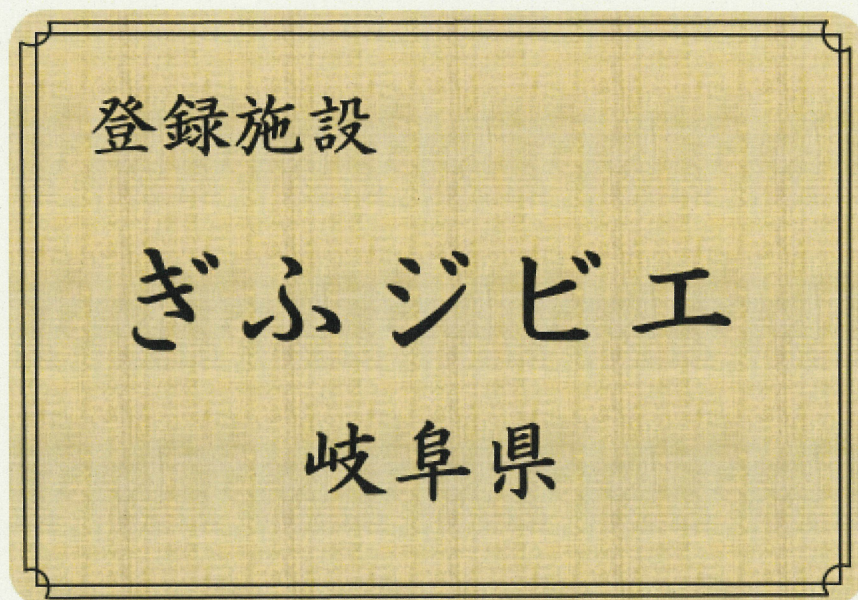 登録施設
ぎふジビエ
岐阜県